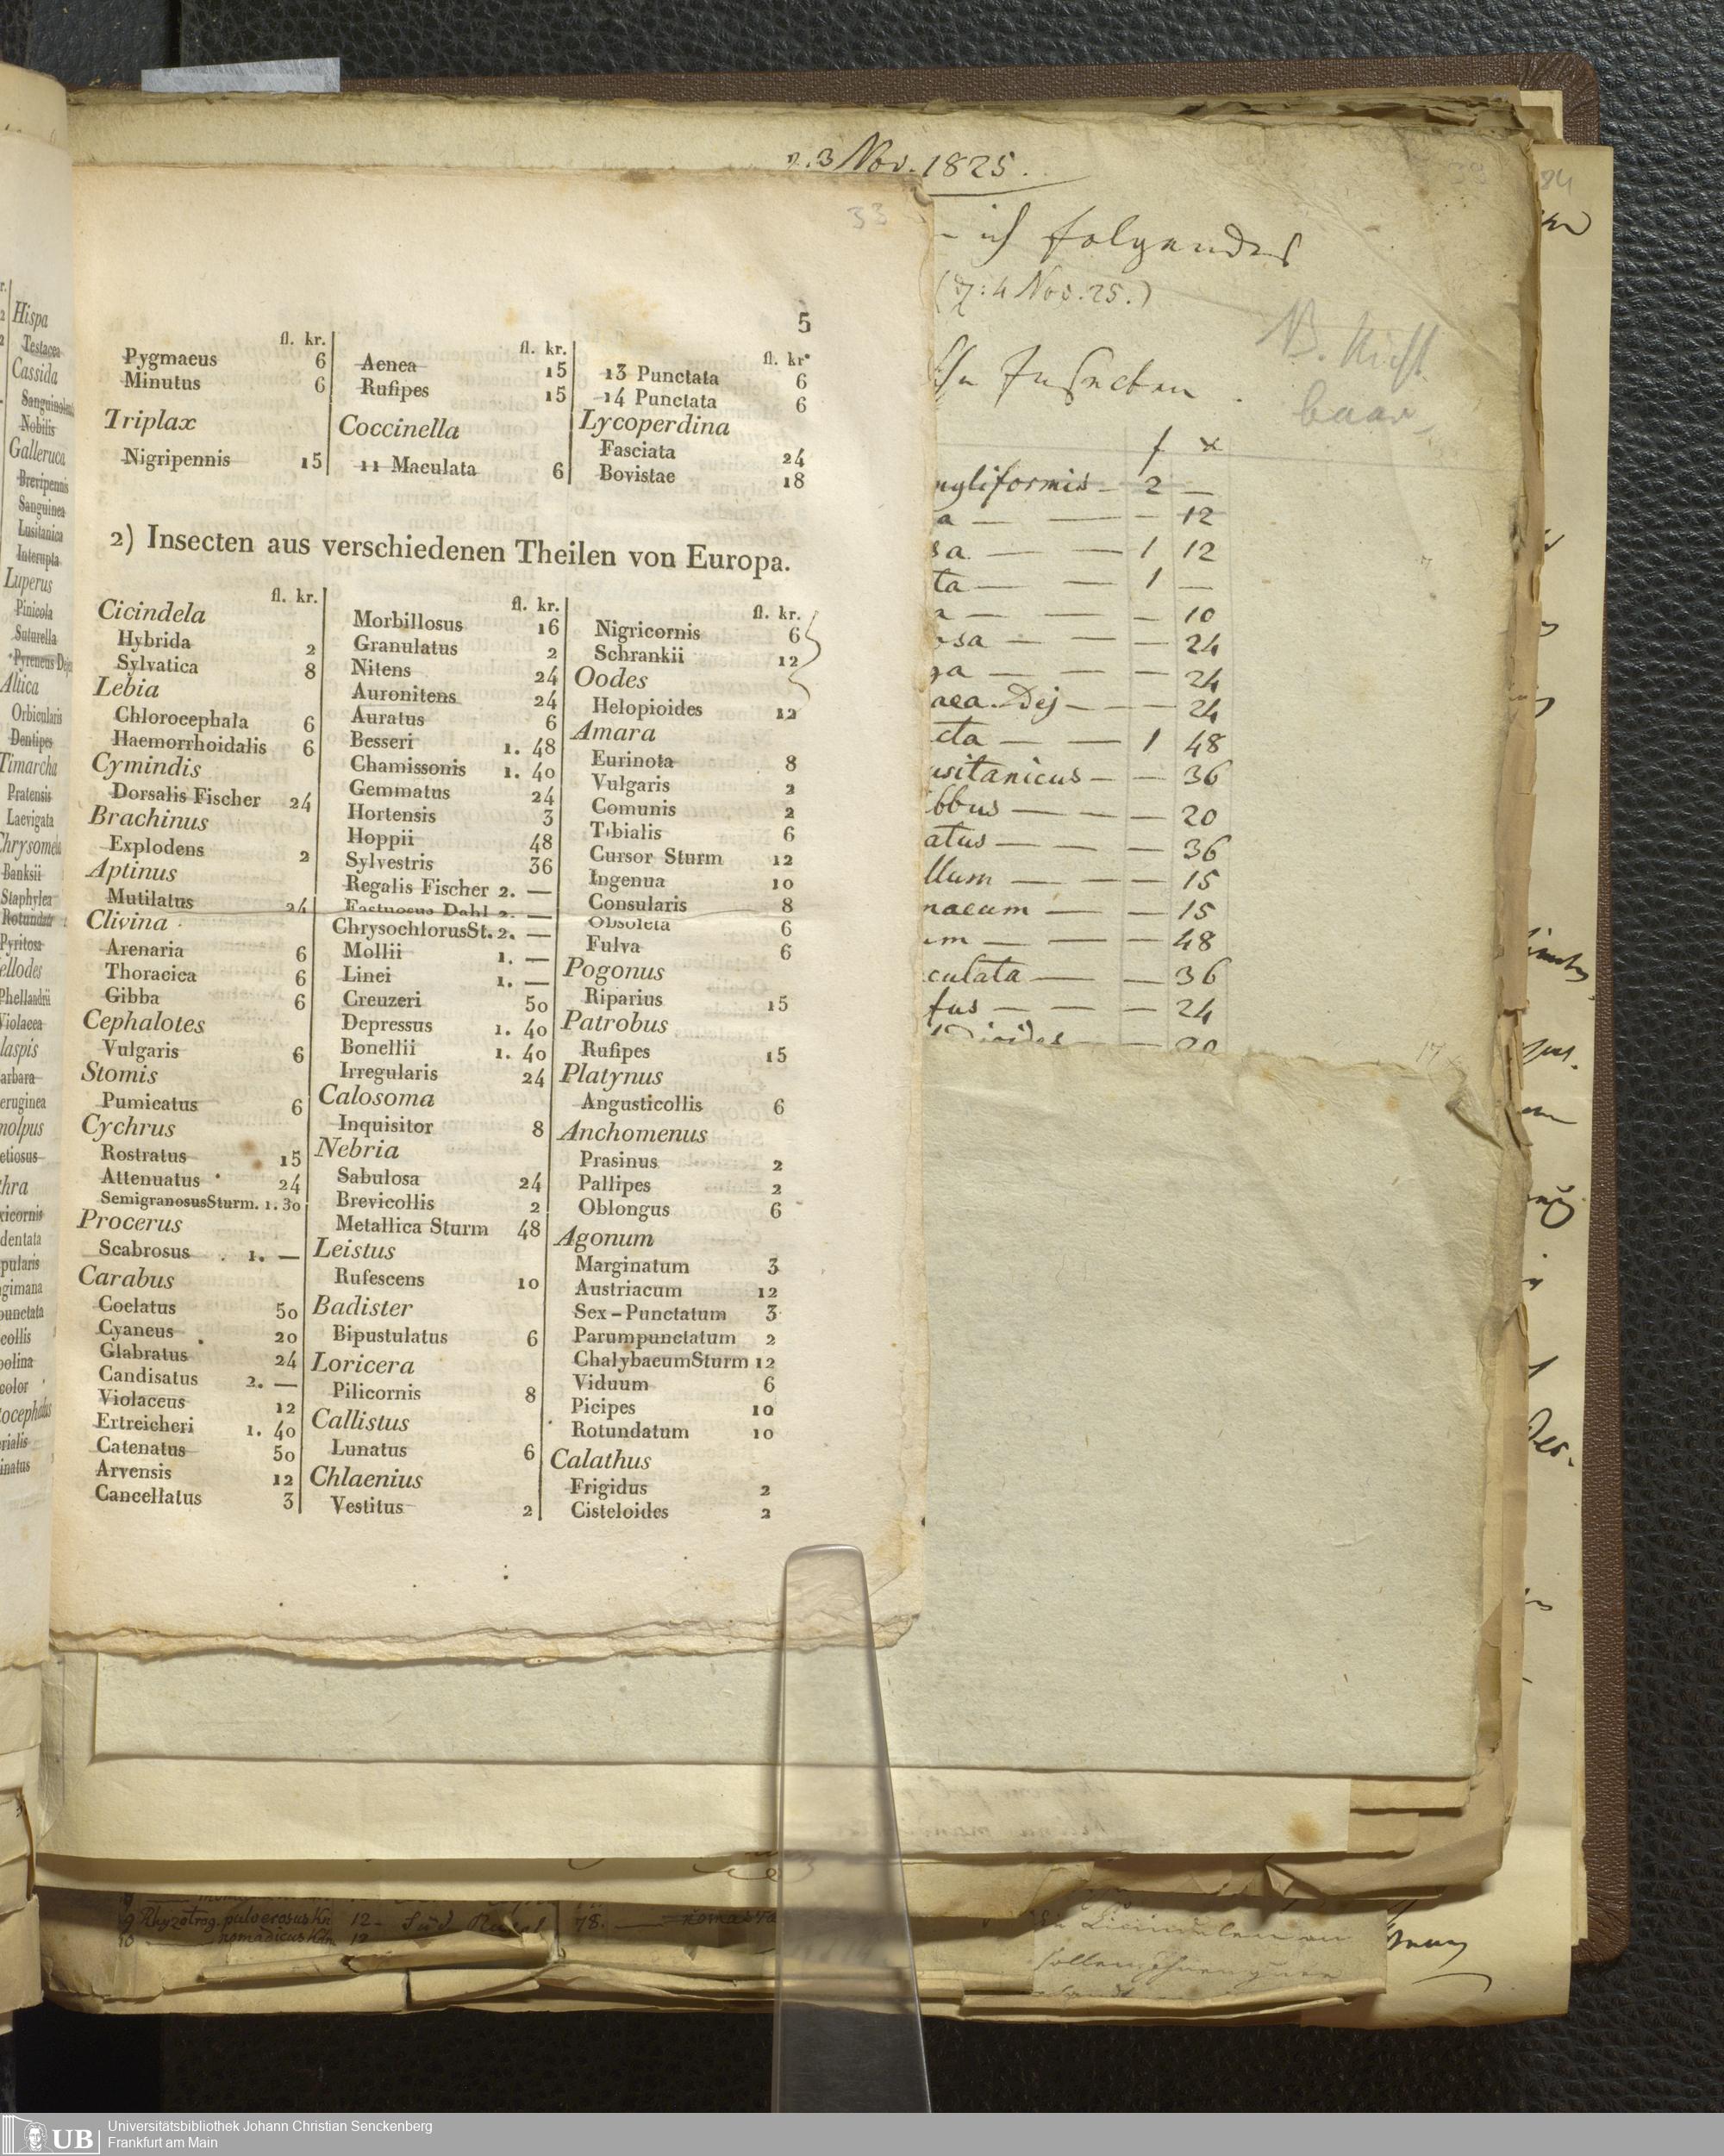 2.3 Nov. 1825.
33
39
84
5
fl. kr.
Pygmaeus 6
Minutus 6
Triplax
Nigripennis 15
fl. kr.
Aenea 15
Rufipes 15
Coccinella
11 Maculata 6
fl. kr.
13 Punctata 6
14 Punctata 6
Lycoperdina
Fasciata 24
Bovistae 18
2) Insecten aus verschiedenen Theilen von Europa.
fl. kr.
Cicindela
Hybrida 2
Sylvatica 8
Lebia
Chlorocephala 6
Haemorrhoidalis 6
Cymindis
Dorsalis Fischer 24
Brachinus
Explodens 2
Aptinus
Mutilatus 24
Clivina
Arenaria 6
Thoracica 6
Gibba 6
Cephalotes
Vulgaris 6
Stomis
Pumicatus 6
Cychrus
Rostratus 15
Attenuatus 24
SemigranosusSturm. 1. 30
Procerus
Scabrosus 1. —
Carabus
Coelatus 50
Cyaneus 20
Glabratus 24
Candisatus 2. —
Violaceus 12
Ertreicheri 1. 40
Catenatus 50
Arvensis 12
Cancellatus 3
fl. kr.
Morbillosus 16
Granulatus 2
Nitens 24
Auronitens 24
Auratus 6
Besseri 1. 48
Chamissonis 1. 40
Gemmatus 24
Hortensis 3
Hoppii 48
Sylvestris 36
Regalis Fischer 2. —
Fastuosus Dahl 2. —
ChrysochlorusSt. 2. —
Mollii 1. —
Linei 1. —
Creuzeri 50
Depressus 1. 40
Bonellii 1. 40
Irregularis 24
Calosoma
Inquisitor 8
Nebria
Sabulosa 24
Brevicollis 2
Metallica Sturm 48
Leistus
Rufescens 10
Badister
Bipustulatus 6
Loricera
Pilicornis 8
Callistus
Lunatus 6
Chlaenius
Vestitus 2
fl. kr.
Nigricornis 6
Schrankii 12
Oodes
Helopioides 12
Amara
Eurinota 8
Vulgaris 2
Comunis 2
Tibialis 6
Cursor Sturm 12
Ingenua 10
Consularis 8
Obsoleta 6
Fulva 6
Pogonus
Riparius 15
Patrobus
Rufipes 15
Platynus
Angusticollis 6
Anchomenus
Prasinus 2
Pallipes 2
Oblongus 6
Agonum
Marginatum 3
Austriacum 12
Sex-Punctatum 3
Parumpunctatum 2
ChalybaeumSturm 12
Viduum 6
Picipes 10
Rotundatum 10
Calathus
Frigidus 2
Cisteloides 2
ich folgendes
4 Nov. 25.)
Insecten
N.
baar
f x
gliformis — 2 —
a — — — 12
sa — — 1 12
ta — — 1 —
a — — — 10
osa — — — 24
ga — — — 24
aea. Dej — — — 24
cta — — 1 48
usitanicus — — 36
bbus — — — 20
atus — — — 36
llum — — — 15
naeum — — 15
um — — — 48
culata — — 36
fus — — — 24
ioides — — 20
Hispa
Testacea
Cassida
Nobilis
Galleruca
Brevipennis
Sanguinea
Lusitanica
Interupta
Luperus
Pinicola
Suturella
Pyreneus Dej
Altica
Orbicularis
Dentipes
Timarcha
Pratensis
Laevigata
Chrysomela
Banksii
Staphylea
Rotundata
Pyritosa
ellodes
Phellandrii
Violacea
laspis
arbara
eruginea
molpus
etiosus
thra
xicornis
dentata
pularis
gimana
punctata
collis
polina
color
tocephalus
rialis
inatus
9 Rhyzotrog. pulverosus Kn 12 - Süd Russl
10 —— nomadicus Kn 12
78.
Universitätsbibliothek Johann Christian Senckenberg
Frankfurt am Main
UB